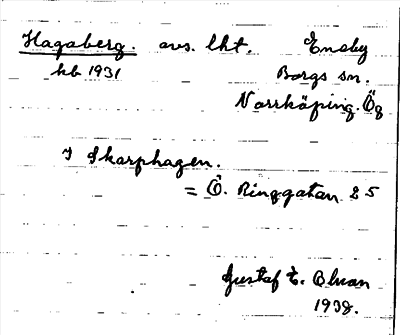 Hagaberg. avs. lht. Eneby
kb 1931 Borgs sn.
Norrköping. Ög
I Skarphagen.
= Ö. Ringgatan 25
Gustaf E. Bluan
1938.